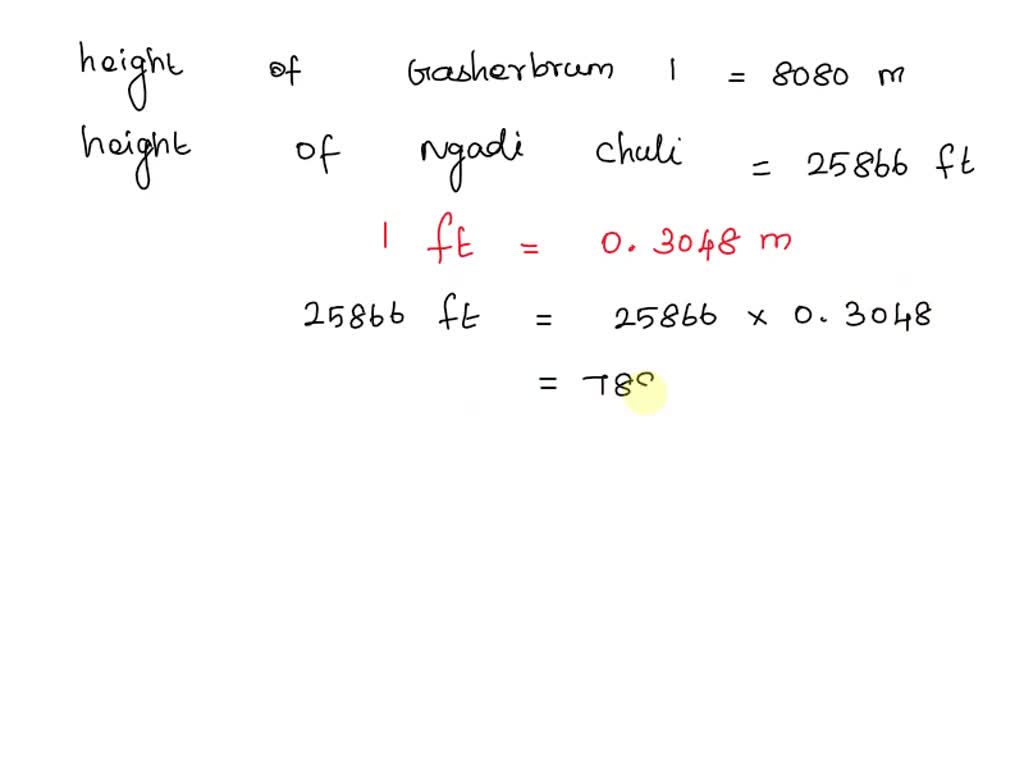 height of Gasherbrum 1 = 8080 m
height of Ngadi chuli = 25866 ft
1 ft = 0.3048 m
25866 ft = 25866 x 0.3048
= 788